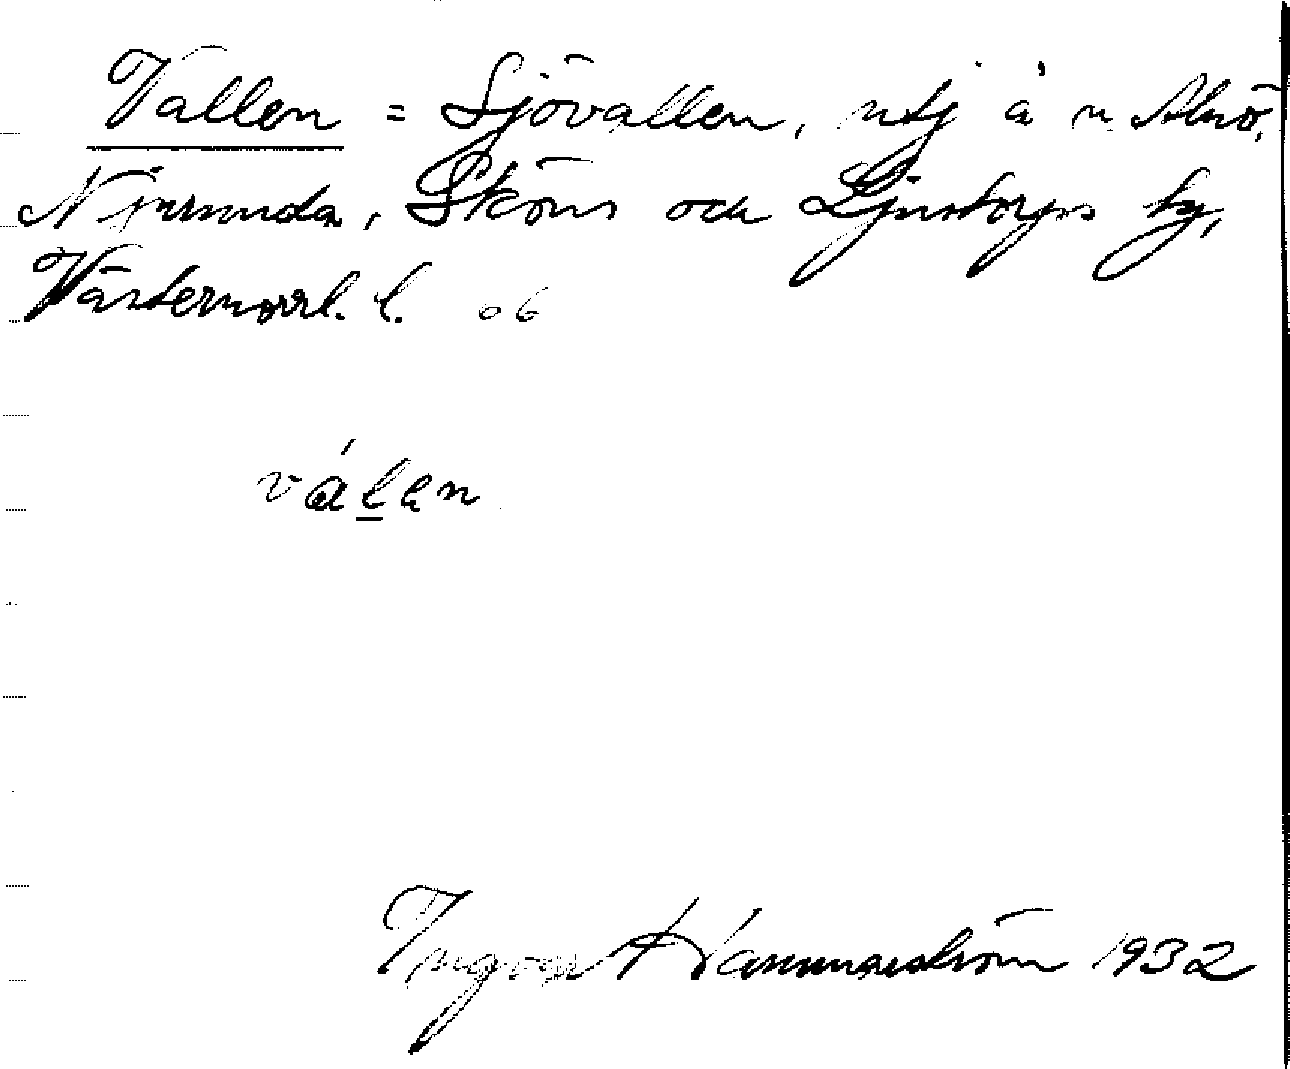 Vallen = Sjövallen, utj å n. Alnö,
Njurunda, Sköns och Ljustorps tg,
Västernorrl. l. 06
válen
Ingvar Hammarström 1932